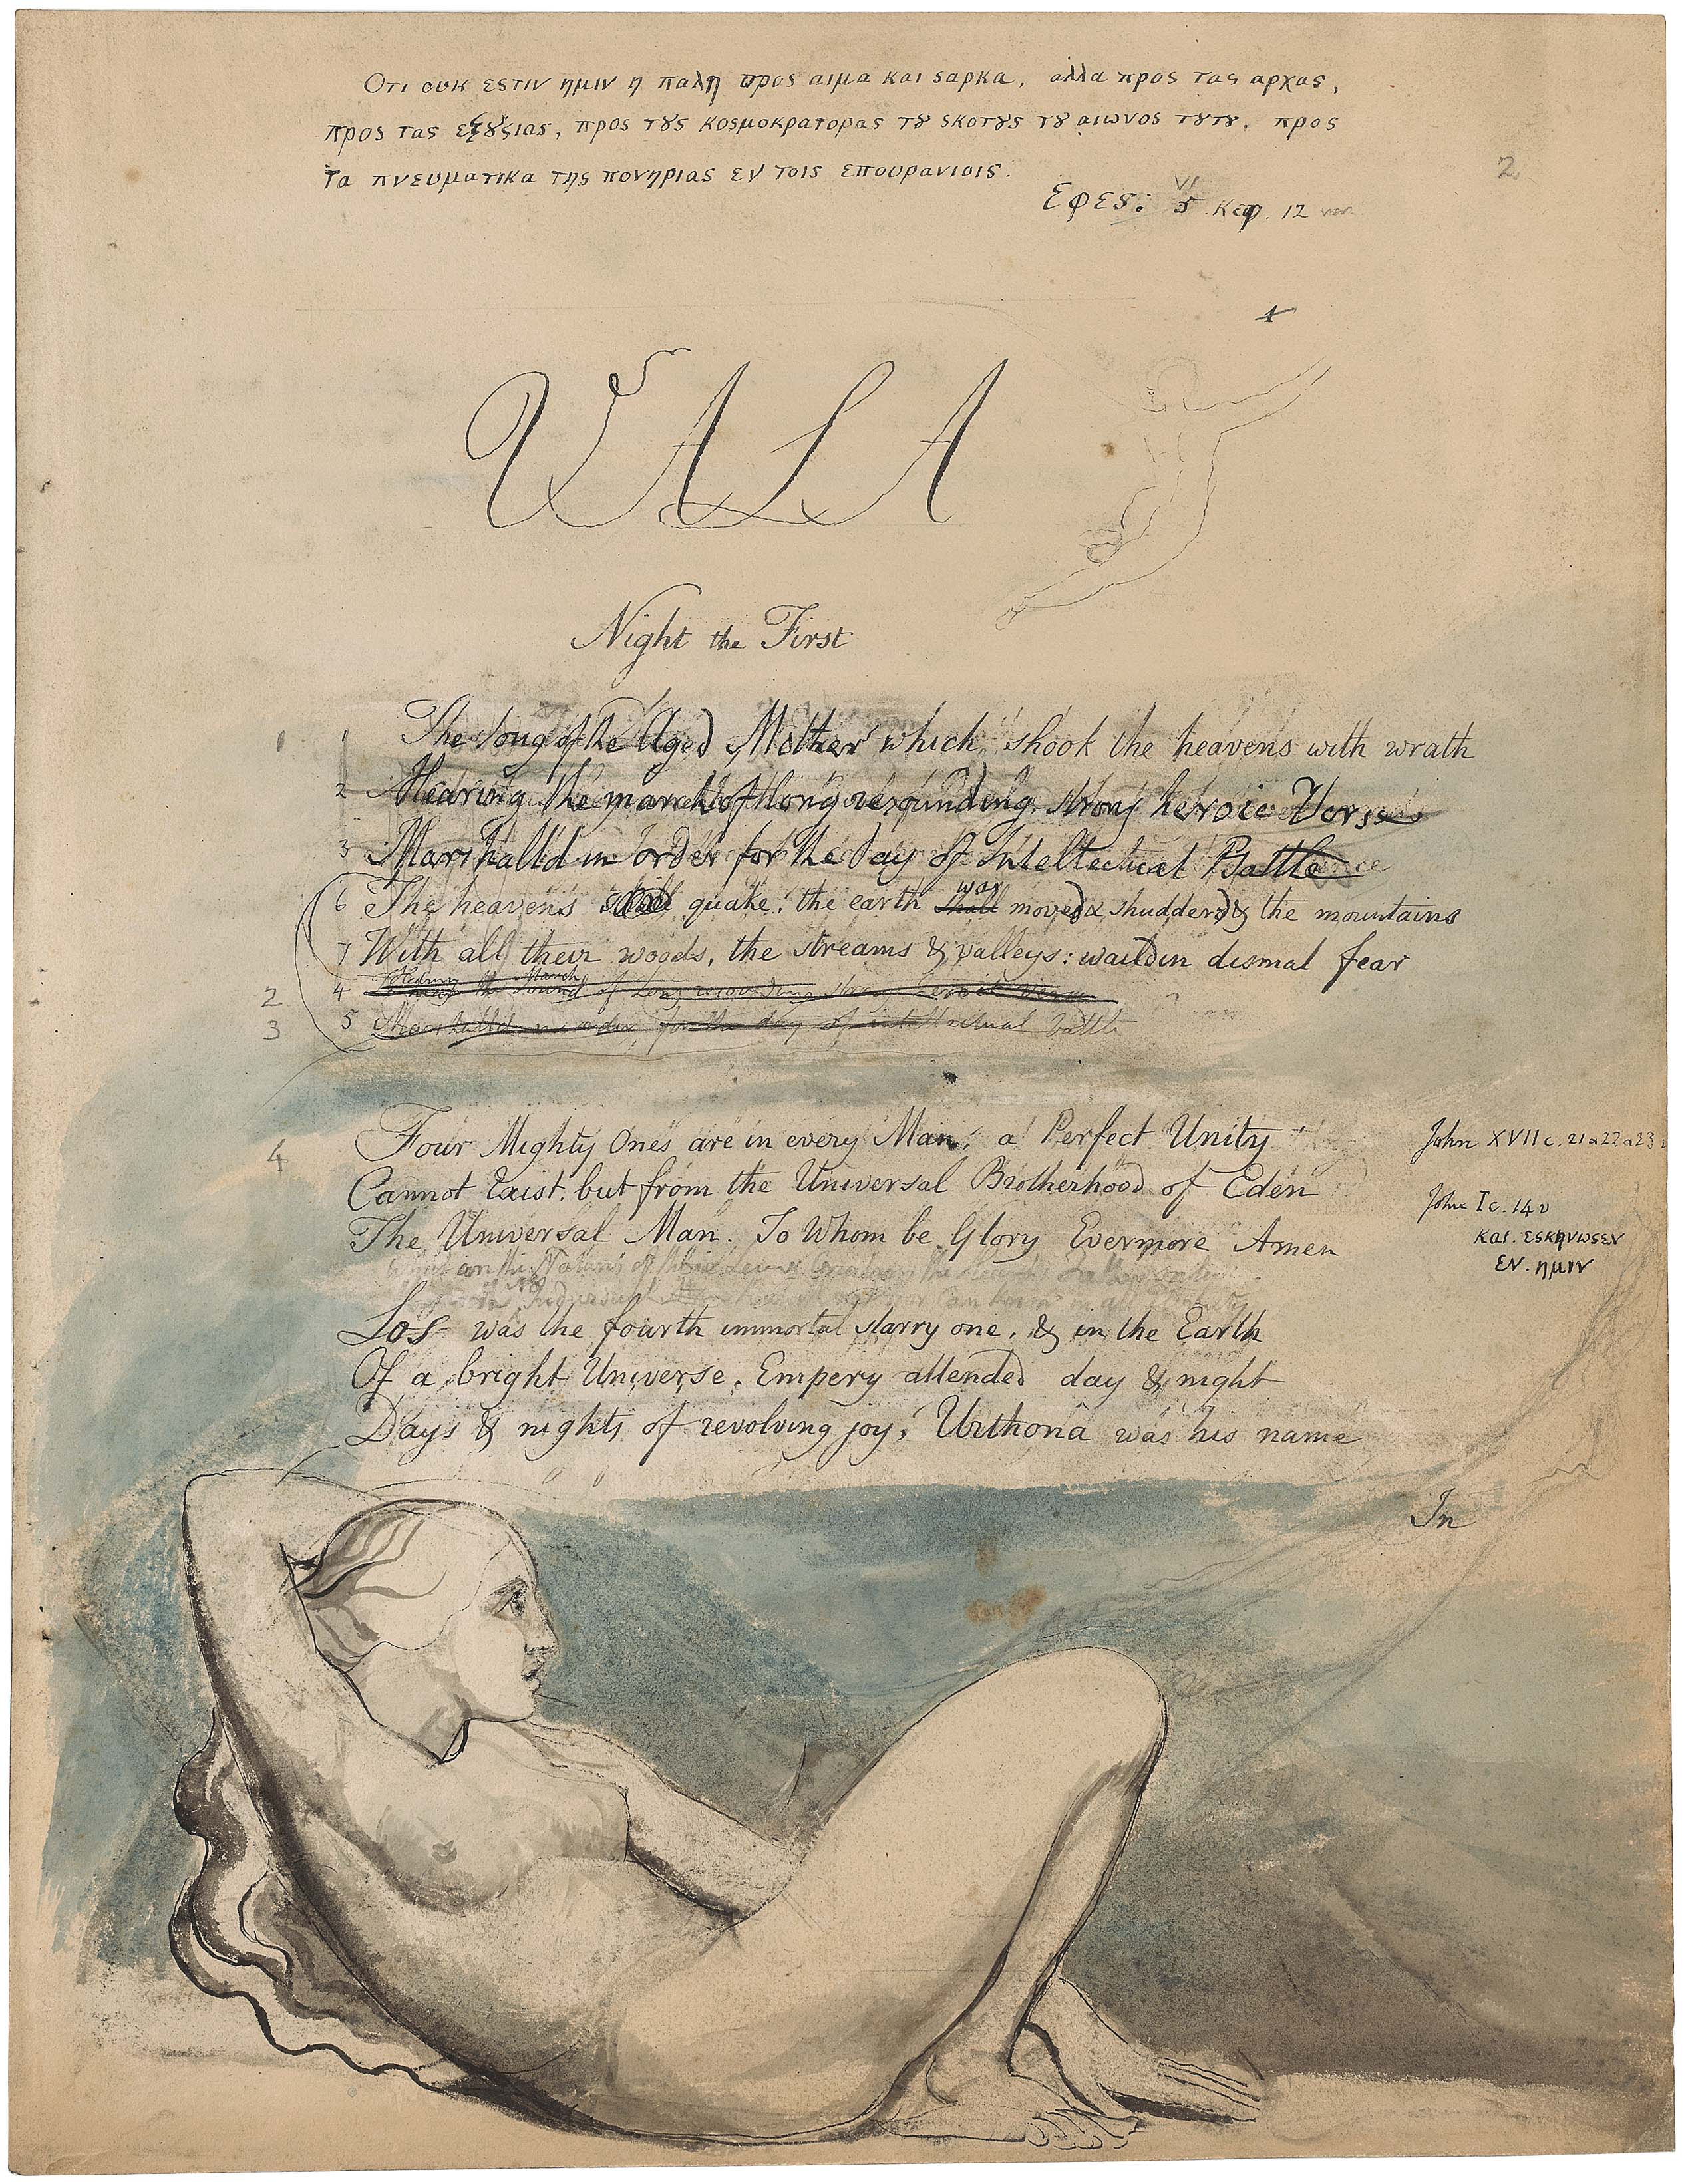 Οτι ουκ εστιν ημιν η παλη προς αιμα και σαρκα, αλλα προς τας αρχας,
προς τας εξȣσιας, προς τȣς κοσμοκρατορας τȣ σκοτȣς τȣ αιωνος τȣτȣ, προς
τα πνευματικα της πονηριας εν τοις επουρανιοις.
Εφες: VI
5 κεφ. 12 ver
2
VALA
Night the First
1 1 The Song of the Aged Mother which shook the heavens with wrath
2 Hearing the march of long resounding strong heroic Verse
3 Marshalld in order for the day of Intellectual Battle
6 The heavens quake: the earth shall was moved & shudderd & the mountains
7 With all their woods, the streams & valleys: waild in dismal fear
2 4 Hearing the March the Sound of long resounding strong heroic verse
3 5 Marshalld in order for the day of intellectual battle
4 Four Mighty Ones are in every Man; a Perfect Unity John XVII c. 21 & 22 & 23 v
Cannot Exist. but from the Universal Brotherhood of Eden John I c. 14 v
The Universal Man. To Whom be Glory Evermore Amen και. εσκηνωσεν
εν. ημιν
Los was the fourth immortal starry one, & in the Earth
Of a bright Universe, Empery attended day & night
Days & nights of revolving joy, Urthona was his name
In